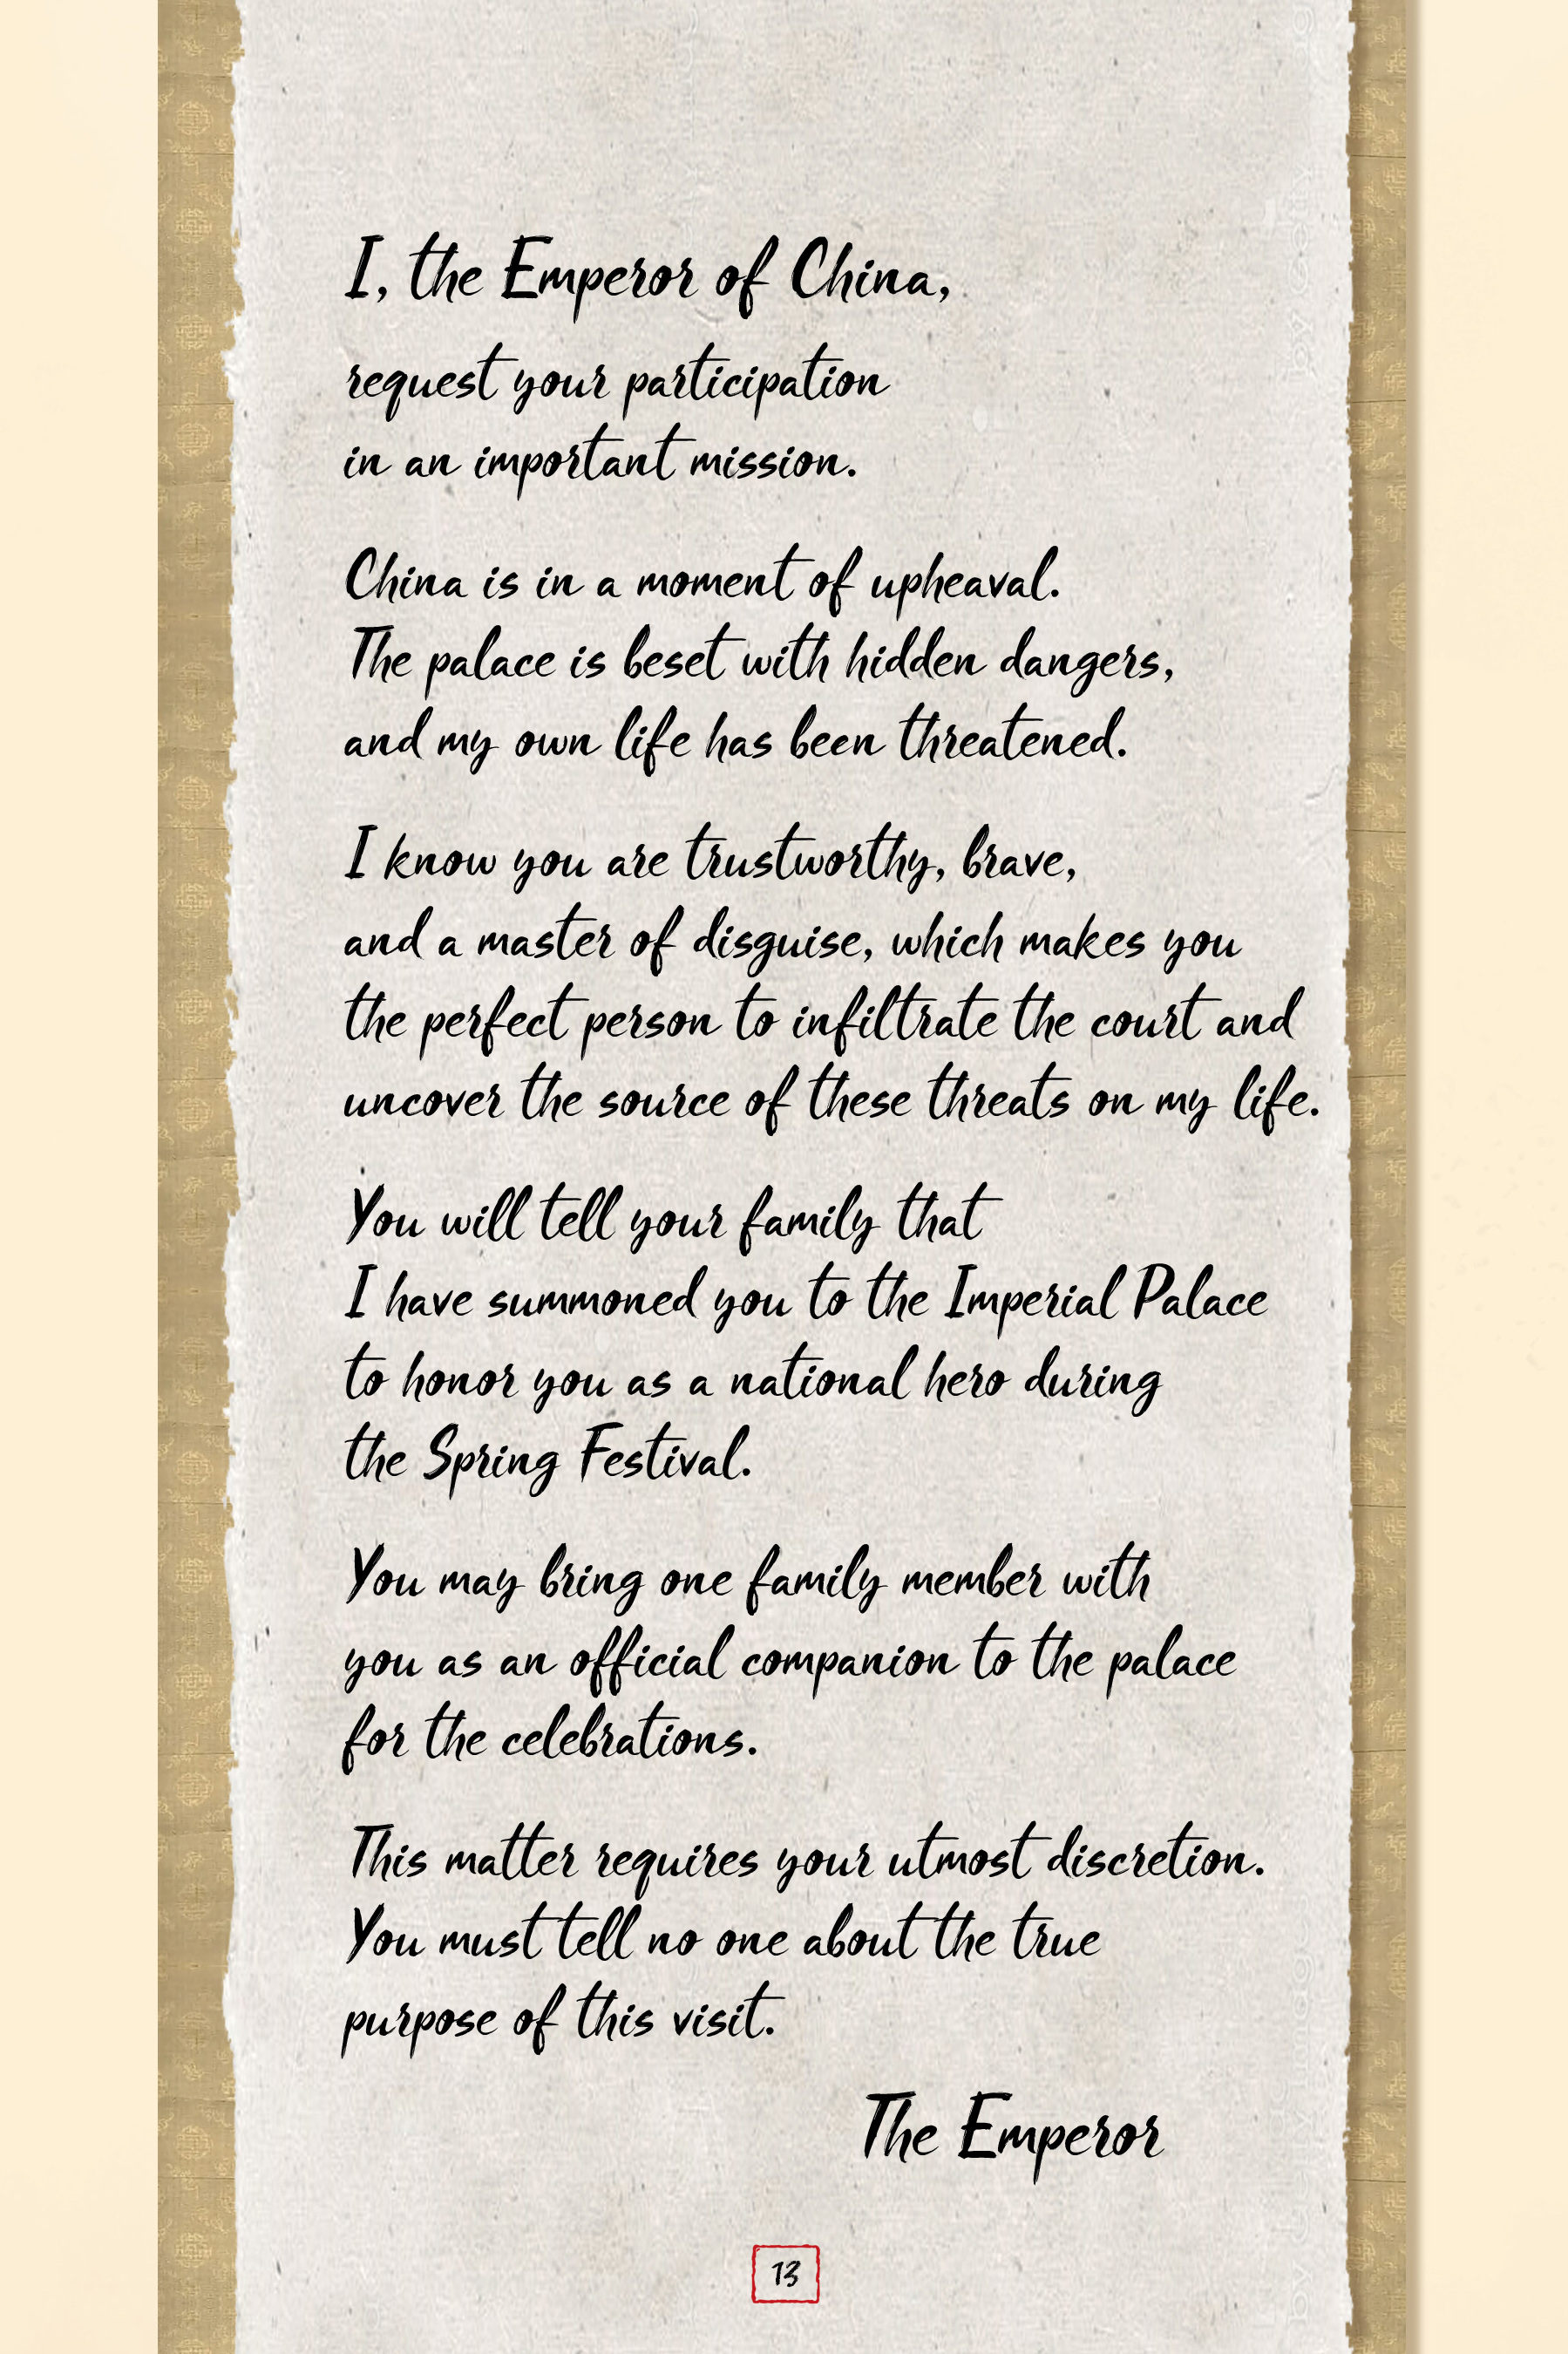 I, the Emperor of China,
request your participation
in an important mission.
China is in a moment of upheaval.
The palace is beset with hidden dangers,
and my own life has been threatened.
I know you are trustworthy, brave,
and a master of disguise, which makes you
the perfect person to infiltrate the court and
uncover the source of these threats on my life.
You will tell your family that
I have summoned you to the Imperial Palace
to honor you as a national hero during
the Spring Festival.
You may bring one family member with
you as an official companion to the palace
for the celebrations.
This matter requires your utmost discretion.
You must tell no one about the true
purpose of this visit.
The Emperor
13